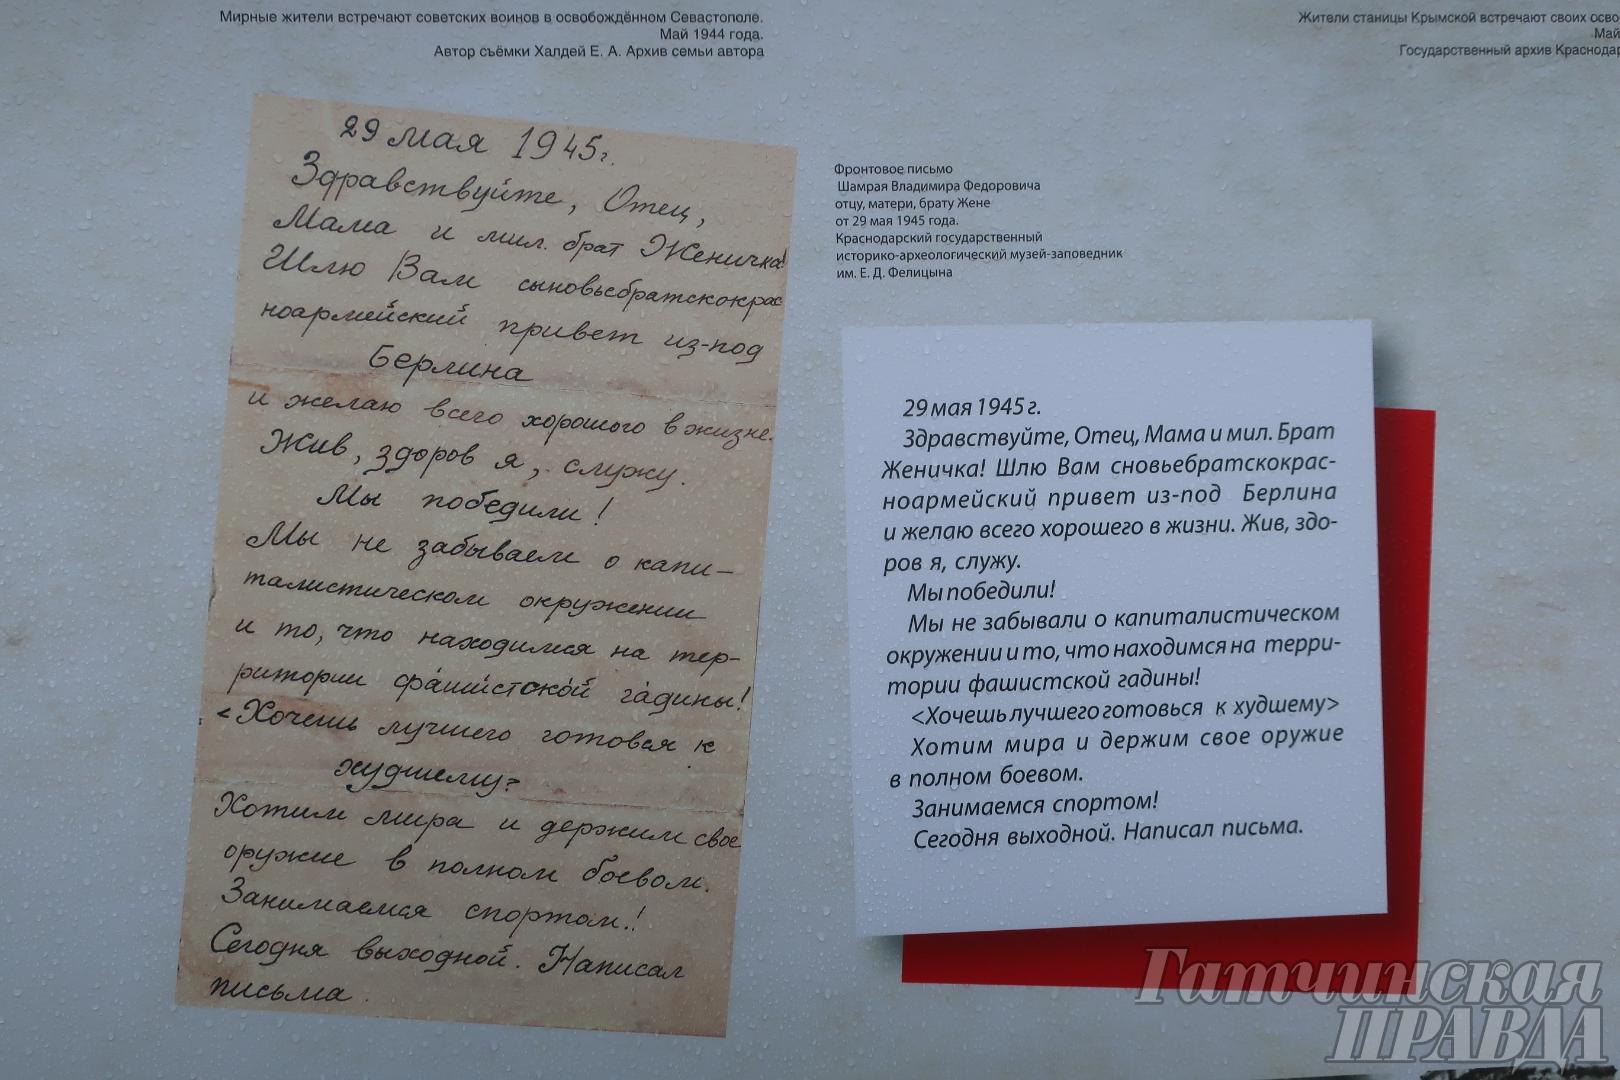 Мирные жители встречают советских воинов в освобождённом Севастополе.
Май 1944 года.
Автор съёмки Халдей Е. А. Архив семьи автора
Жители станицы Крымской встречают своих осво
Май
Государственный архив Краснодар
29 мая 1945г.
Здравствуйте, Отец,
Мама и мил. брат Женичка!
Шлю Вам сыновьебратскокрас
ноармейский привет из-под
Берлина
и желаю всего хорошого в жизне.
Жив, здоров я, служу.
Мы победили!
Мы не забываем о капи-
талистическом окружении
и то, что находимся на тер-
ритории фашистской гадины!
<Хочешь лучшего готовся к
худшему>
Хотим мира и держим свое
оружие в полном боевом.
Занимаемся спортом!
Сегодня выходной. Написал
письма.
Фронтовое письмо
Шамрая Владимира Федоровича
отцу, матери, брату Жене
от 29 мая 1945 года.
Краснодарский государственный
историко-археологический музей-заповедник
им. Е. Д. Фелицына
29 мая 1945 г.
Здравствуйте, Отец, Мама и мил. Брат
Женичка! Шлю Вам сновьебратскокрас-
ноармейский привет из-под Берлина
и желаю всего хорошего в жизни. Жив, здо-
ров я, служу.
Мы победили!
Мы не забывали о капиталистическом
окружении и то, что находимся на терри-
тории фашистской гадины!
<Хочешь лучшего готовься к худшему>
Хотим мира и держим свое оружие
в полном боевом.
Занимаемся спортом!
Сегодня выходной. Написал письма.
Гатчинская
ПРАВДА